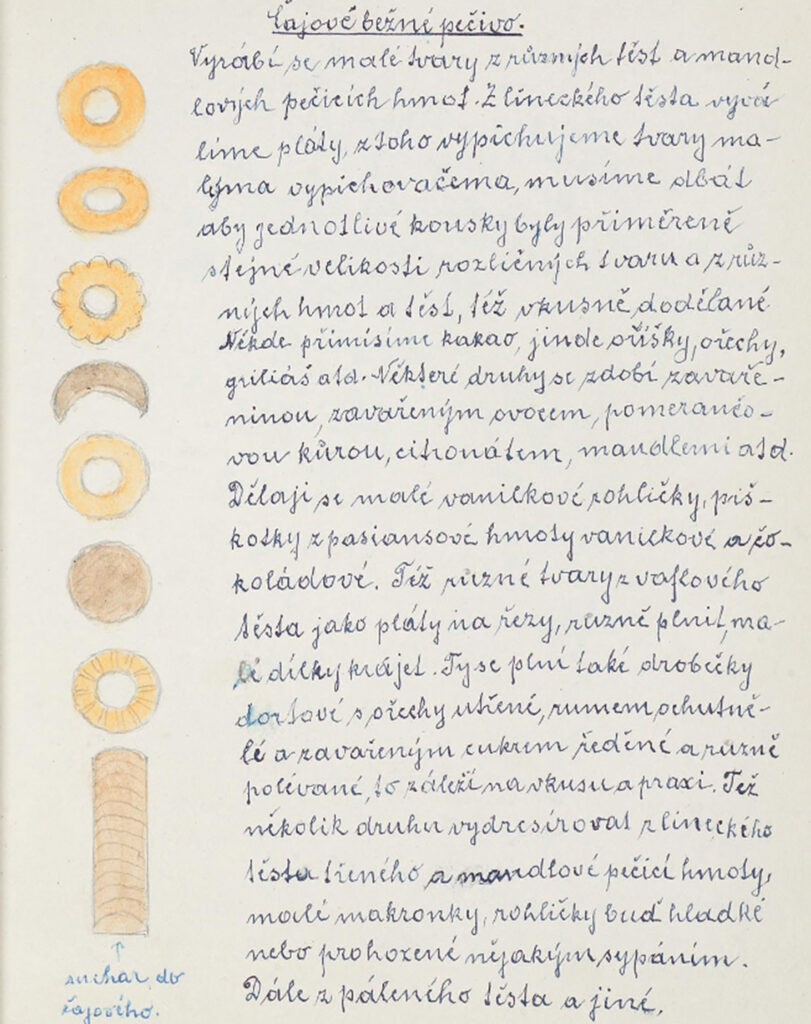 Čajové běžné pečivo.
Vyrábí se malé tvary z různých těst a mand-
lových pečicích hmot. Z lineckého těsta vyvá
líme pláty, z toho vypichujeme tvary ma-
lýma vypichovačema, musíme dbát
aby jednotlivé kousky byly přiměřeně
stejné velikosti rozličných tvaru a z růz-
ných hmot a těst, též vkusně dodělané
Někde přimísíme kakao, jinde oříšky, ořechy,
griliáš atd. Některé druhy se zdobí zavaře-
ninou, zavařeným ovocem, pomerančo-
vou kůrou, citronátem, mandlemi atd.
Dělaji se malé vanilkové rohličky, piš-
kotky z pasiansové hmoty vanilkové a čo-
koládové. Též ruzné tvary z vaflového
těsta jako pláty na řezy, ruzně plnit, ma-
lé dílky krájet. Ty se plní také drobečky
dortové s ořechy utřené, rumem ochutně-
lé a zavařeným cukrem ředěné a ruzně
polévané, to záleží na vkusu a praxi. Též
několik druhu vydresírovat z lineckého
těsta třeného a mandlové pečicí hmoty,
malé makronky, rohličky buď hladké
nebo prohozené nějakým sypáním.
Dále z páleného těsta a jiné.
suchar do
čajového.